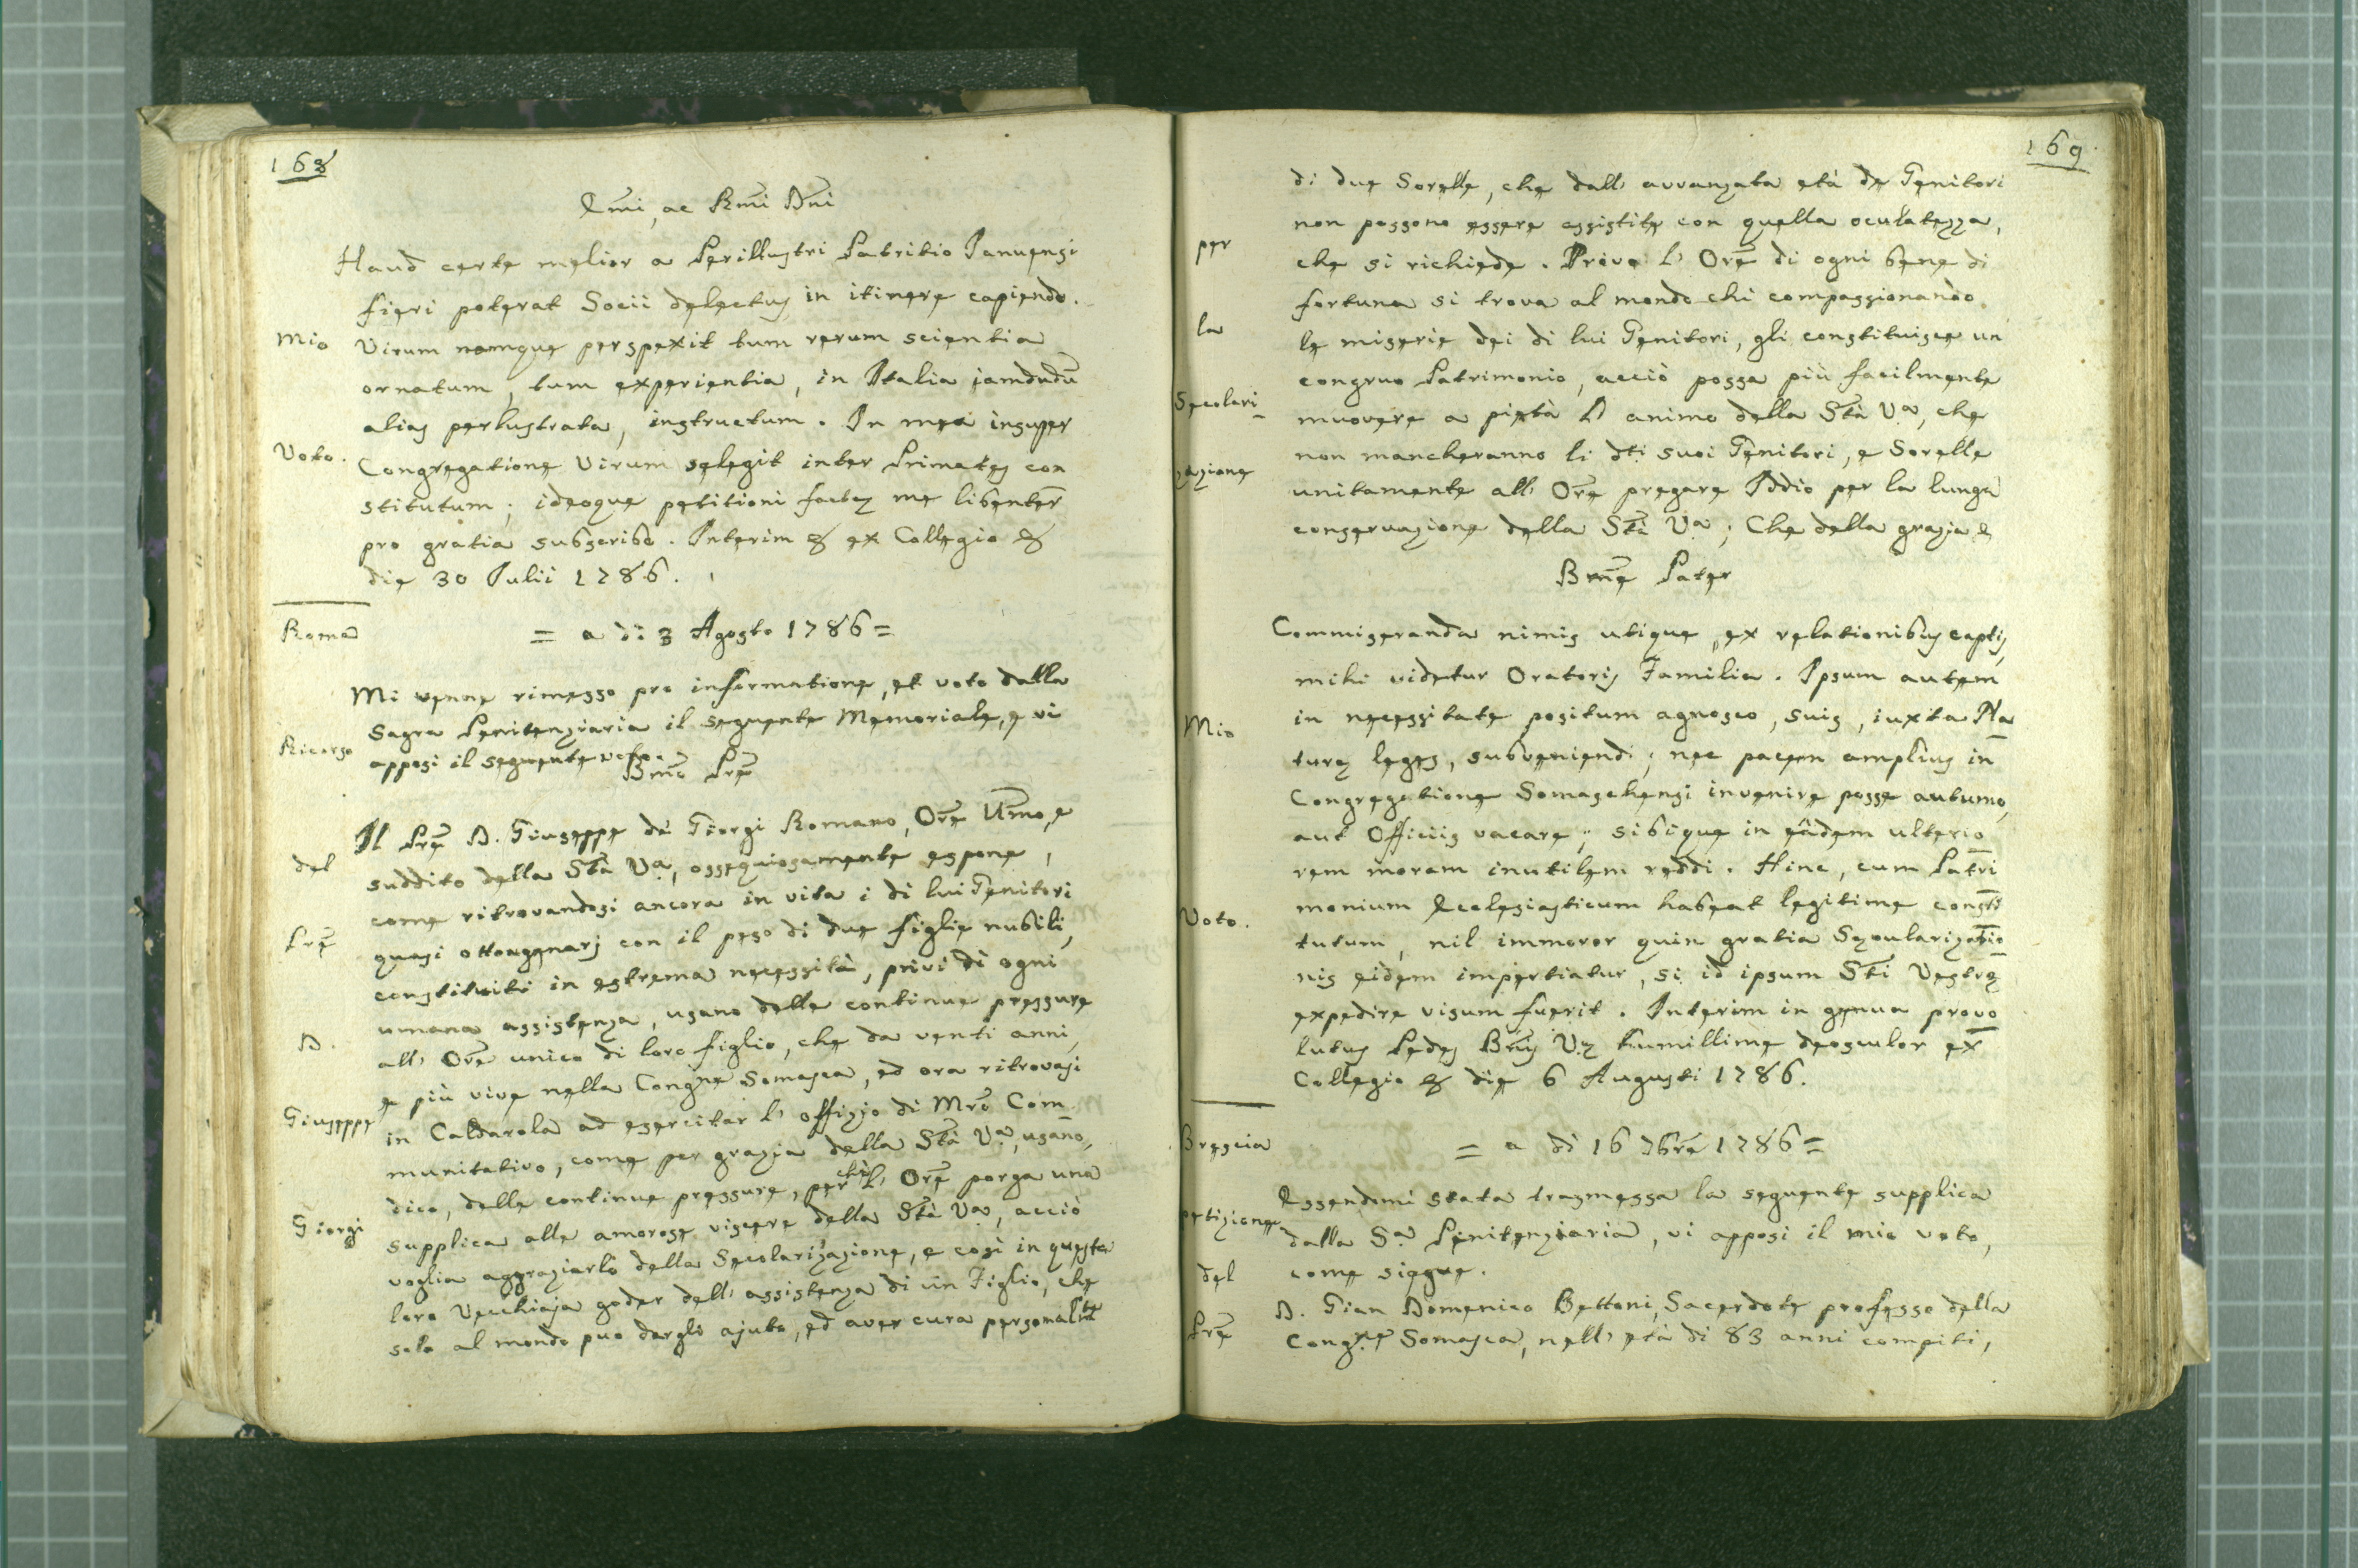 168
Emi, ac Rmi Dni
Haud certe melior a Perillustri Patritio Januensi
fieri poterat Socii delectus in itinere capiendo.
Mio
Virum namque perspexit tum rerum scientia
ornatum, tum experientia, in Italia iamdudu
alias perlustrata, instructum. In mea insuper
Voto.
Congregatione Virum selegit inter Primates con
stitutum; ideoque petitioni factę me libenter
pro gratia subscribo. Interim & ex Collegio &
die 30 Julii 1786.
Roma
= a di 3 Agosto 1786 =
Mi venne rimesso pro informatione, et voto dalla
Sagra Penitenziaria il seguente Memoriale, e vi
Ricorso
apposi il seguente voto.
Bmo Pre
Il Pre D. Giuseppe de Giorgi Romano, Ore Umo, e
del
suddito della Sta Va, ossequiosamente espone,
come ritrovandosi ancora in vita i di lui Genitori
Pre
quasi ottougenarj con il peso di due figlie nubili,
constituiti in estrema necessità, privi di ogni
umana assistenza, usano delle continue pressure
D.
all' Ore unico di loro figlio, che da venti anni,
e più vive nella Congne Somasca, ed ora ritrovasi
Giuseppe
in Caldarola ad esercitar l' offizio di Mro Com
munitativo, come per grazia della Sta Va, usano,
dico, delle continue pressure, perchè l' Ore porga una
Giorgi
supplica alle amorose viscere della Sta Va, acciò
voglia aggraziarlo della Secolarizazione, e così in questa
loro Vecchiaja goder dell' assistenza di un Figlio, che
solo al mondo puo dargli ajuto, ed aver cura personalmte
169.
di due Sorelle, che dall' avvanzata età de Genitori
non possono essere assistite con quella oculatezza,
per
che si richiede. Privo l' Ore di ogni bene di
fortuna si trova al mondo chi compassionando
la
le miserie dei di lui Genitori, gli constituisce un
congruo Patrimonio, acciò possa più facilmente
Secolari
muovere a pietà l' animo della Sta Va, che
non mancheranno li dti suoi Genitori, e Sorelle
zazione
unitamente all' Ore pregare Iddio per la lunga
conservazione della Sta Va; Che della grazia &
Bme Pater
Commiseranda nimis utique, ex relationibus captis,
mihi videtur Oratoris Familia. Ipsum autem
Mio
in necessitate positum agnosco, suis, iuxta Na
turę leges, subveniendi; nec pacem amplius in
Congregatione Somaschensi invenire posse autumo,
aut Officiis vacare; sibique in eâdem ulterio
rem moram inutilem reddi. Hinc, cum Patri
Voto.
monium Ecclesiasticum habeat legitime consti
tutum, nil immoror quin gratia Sęcularizatio
nis eidem impertiatur, si id ipsum Sti Vestrę
expedire visum fuerit. Interim in genua provo
lutus Pedes Bnis Vę humillime deosculor ex
Collegio & die 6 Augusti 1786.
Brescia
= a di 16 7bre 1786 =
Essendomi stata trasmessa la seguente supplica
petizione
dalla Sa Penitenziaria, vi apposi il mio voto,
del
come siegue.
Pre
D. Gian Domenico Bettoni, Sacerdote professo della
Congne Somasca, nell' età di 83 anni compiti,